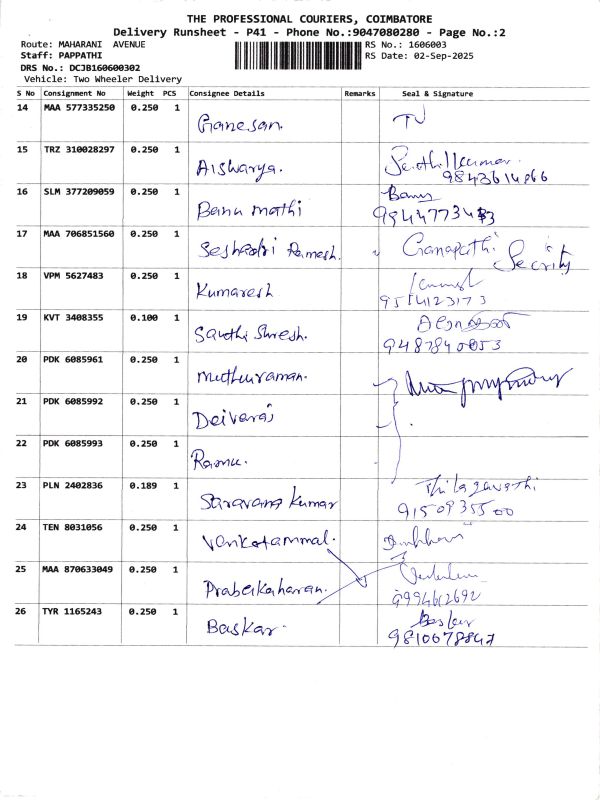 THE PROFESSIONAL COURIERS, COIMBATORE
Delivery Runsheet - P41 - Phone No.:9047080280 - Page No.:2
Route: MAHARANI AVENUE RS No.: 1606003
Staff: PAPPATHI RS Date: 02-Sep-2025
DRS No.: DCJB160600302
Vehicle: Two Wheeler Delivery
S No Consignment No Weight PCS Consignee Details Remarks Seal & Signature
14 MAA 577335250 0.250 1 Ganesan.
15 TRZ 310028297 0.250 1 Aishwarya. Senthilkumar
16 SLM 377209059 0.250 1 Banu mathi Banu
17 MAA 706851560 0.250 1 Seshadri Ramesh. Ganapathi
Secrity
18 VPM 5627483 0.250 1 Kumaresh
9514123173
19 KVT 3408355 0.100 1
9487840053
20 PDK 6085961 0.250 1 Muthuraman.
21 PDK 6085992 0.250 1 Deivaraj
22 PDK 6085993 0.250 1 Ramu.
23 PLN 2402836 0.189 1 Saravana Kumar Thilagavathi
9150935500
24 TEN 8031056 0.250 1 Venkatammal.
25 MAA 870633049 0.250 1 Prabakaharan.
9994612692
26 TYR 1165243 0.250 1 Baskar. Baskar
9810678847